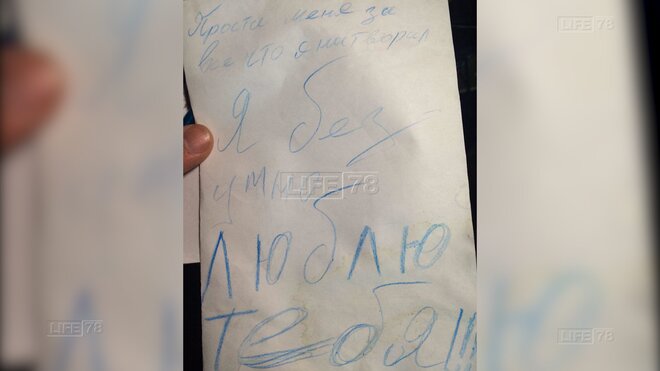 Прости меня за
все что я натворил
Я без
умно
люблю
тебя!!!
LIFE 78
LIFE 78
LIFE 78
LIFE 78